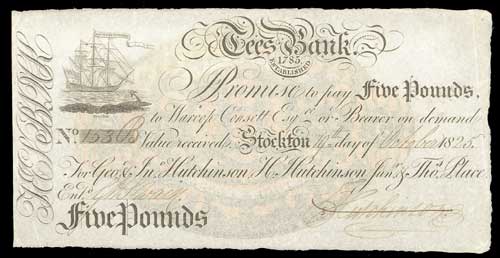 TEES BANK
Tees Bank.
1785.
ESTABLISHED
I Promise to pay Five Pounds,
to Warcop Consett Esqr. or Bearer on demand
No. Value received Stockton 10th day of October 1825.
For Geo. & Jno. Hutchinson, H. Hutchinson Junr. & Thos. Place
Entd.
Hutchinson
Five Pounds